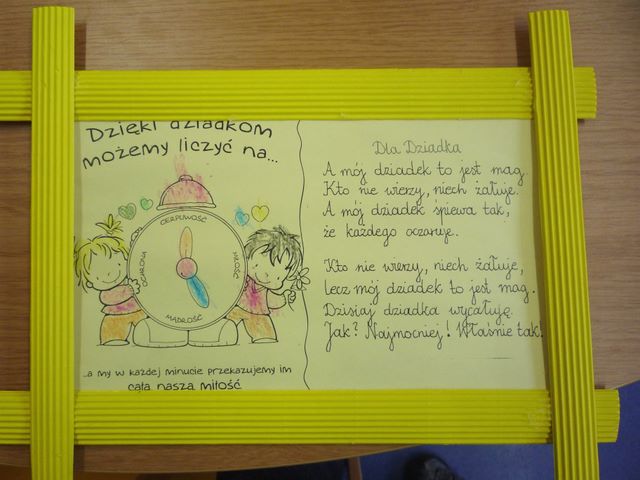 Dzięki dziadkom
możemy liczyć na...
CIERPLIWOŚĆ
OCHRONA
MIŁOŚĆ
MĄDROŚĆ
...a my w każdej minucie przekazujemy im
całą naszą miłość
Dla Dziadka
A mój dziadek to jest mag.
Kto nie wierzy, niech żałuje.
A mój dziadek śpiewa tak,
że każdego oczaruje.
Kto nie wierzy, niech żałuje,
lecz mój dziadek to jest mag.
Dzisiaj dziadka wycałuję.
Jak? Najmocniej! Właśnie tak.